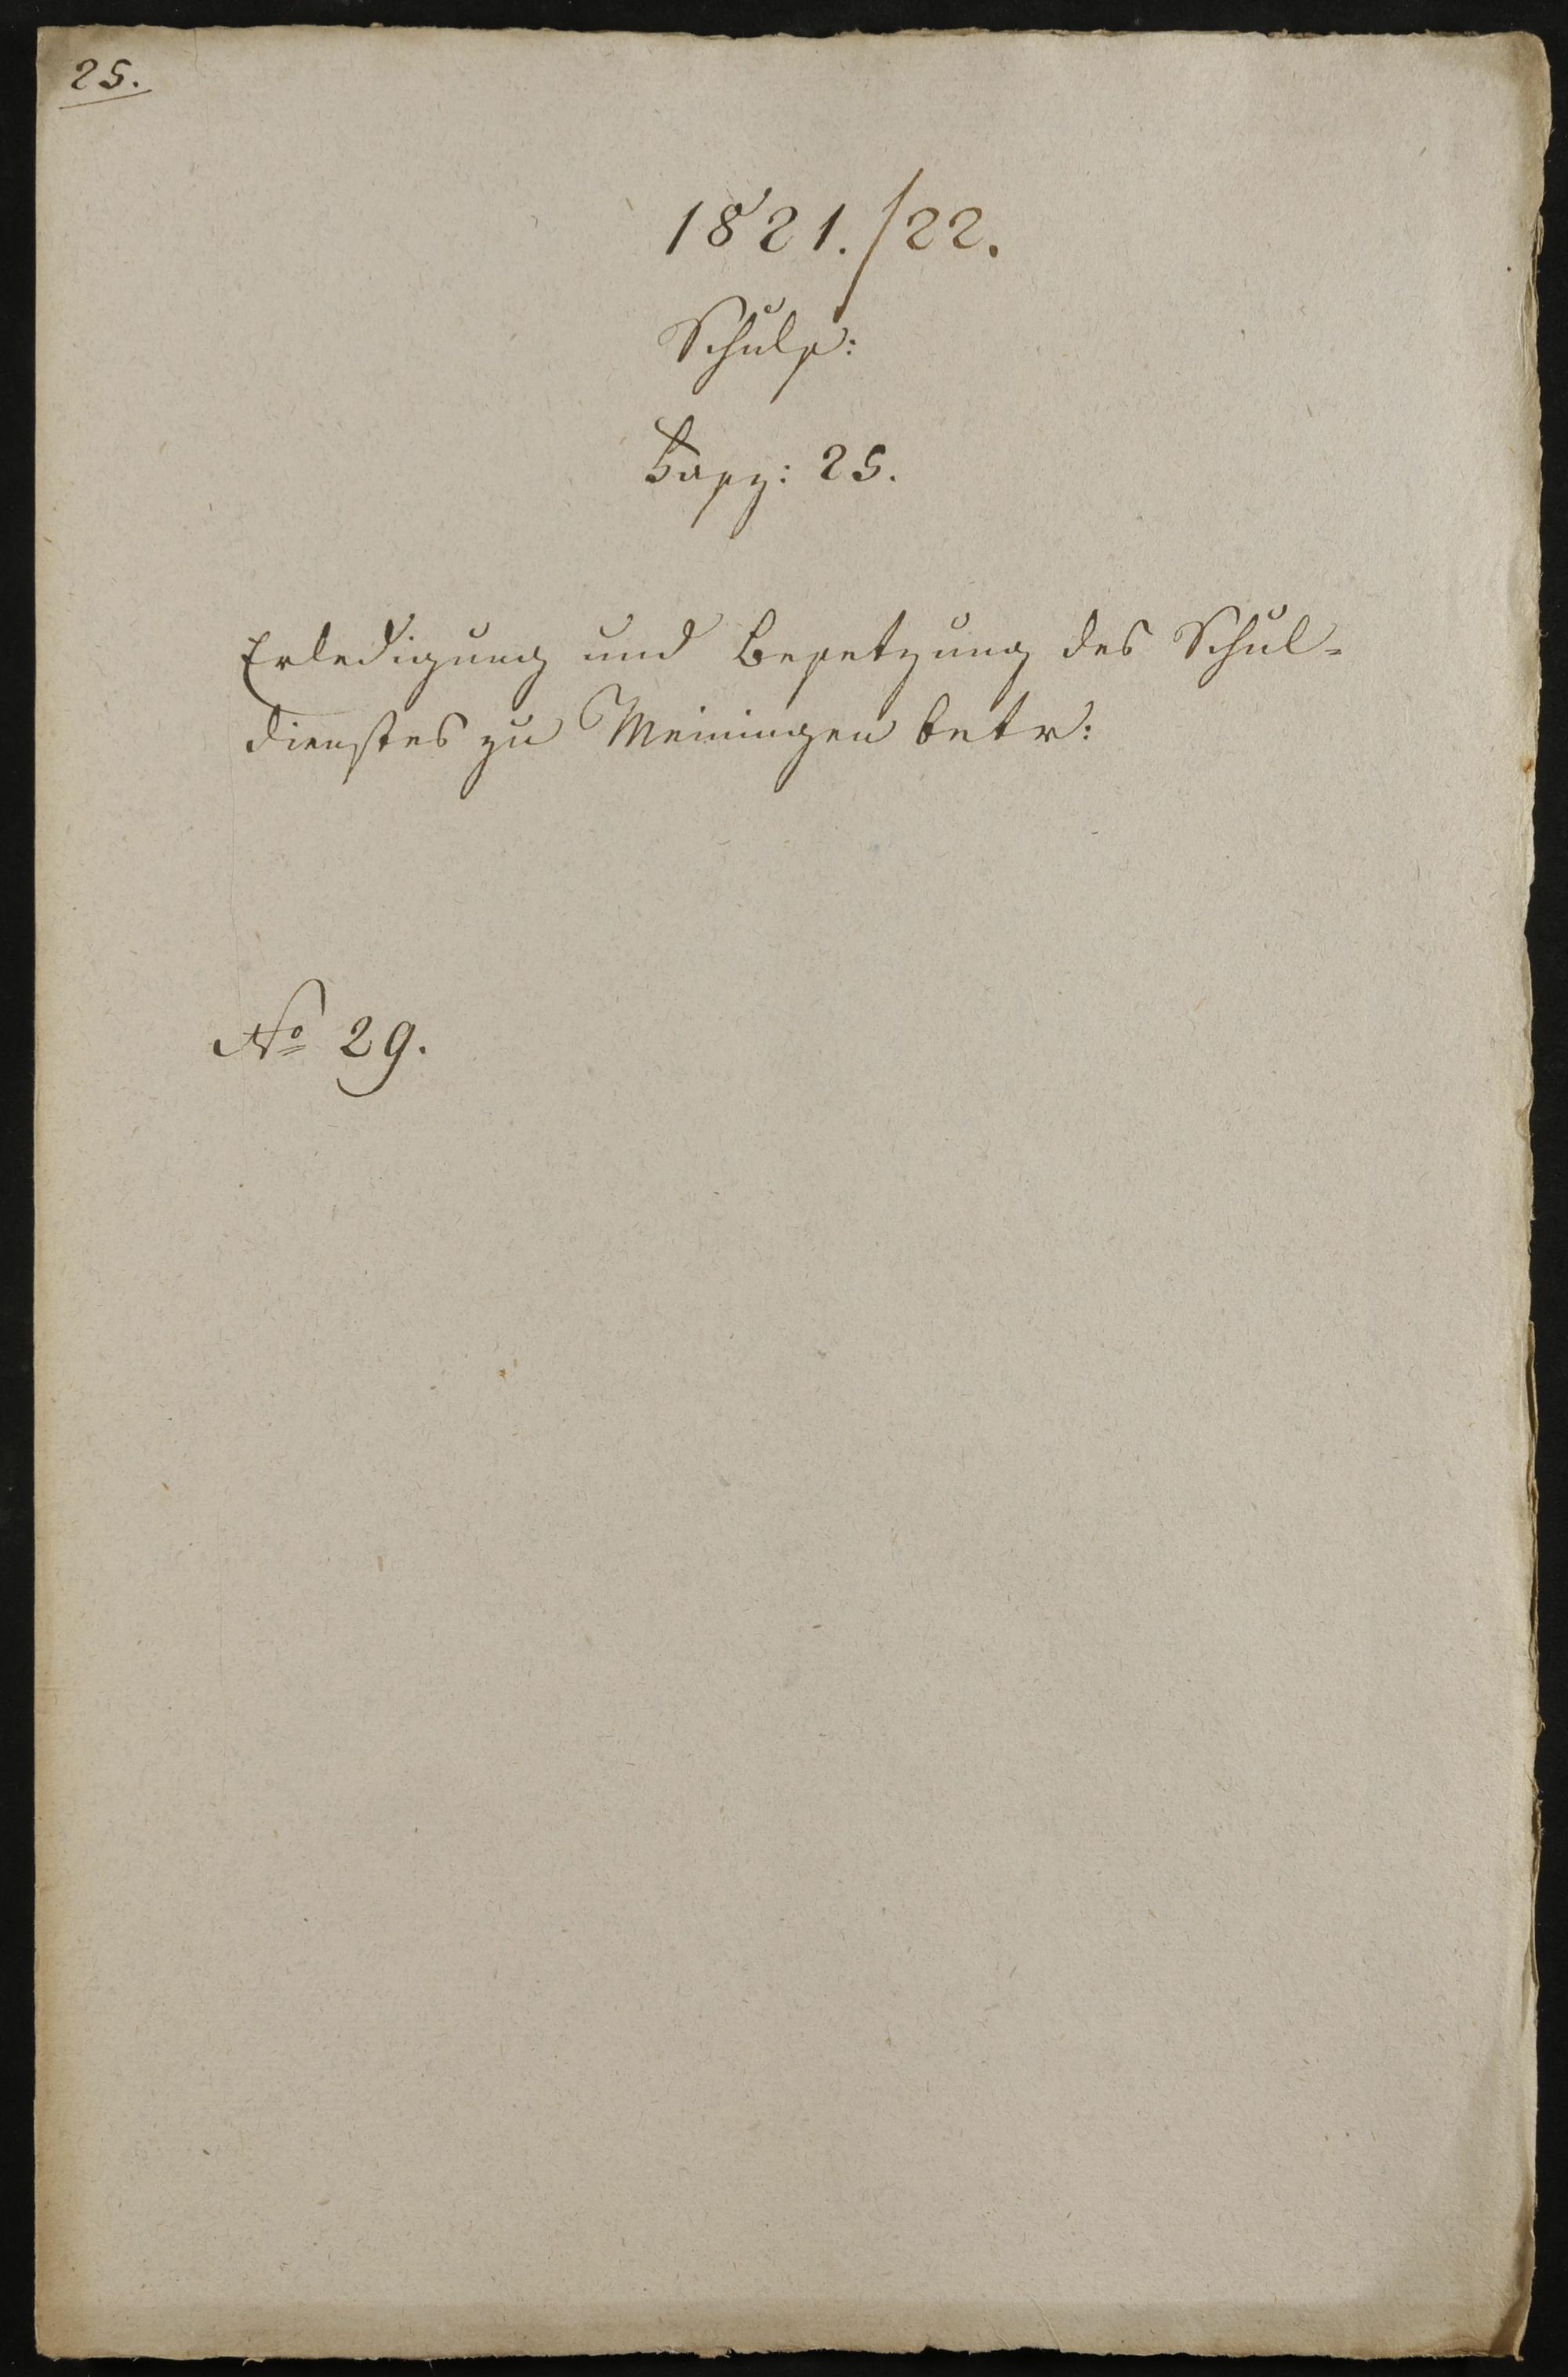 25.
1821./22.
Schuls:
Fasz: 25.
Erledigung und Besetzung des Schul-
dienstes zu Meiningen betr:
No 29.